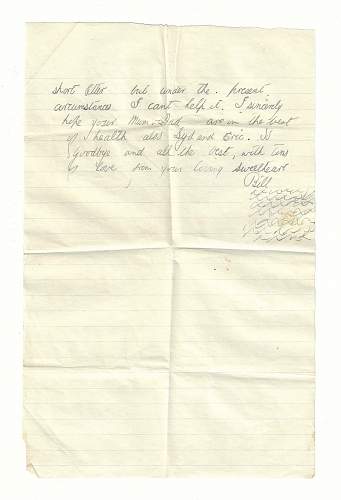 short letter but under the present
circumstances I cant help it. I sincerely
hope your Mum & Dad are in the best
of health also Syd and Eric. So
goodbye and all the best, with tons
of love from your loving sweetheart
Bill